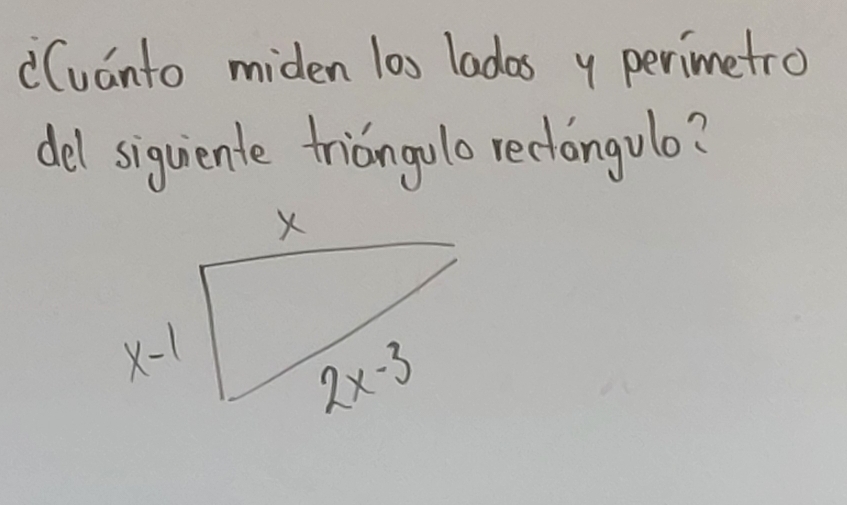 ¿Cuánto miden los lados y perímetro
del siguiente triángulo rectángulo?
x
x-1
2x-3